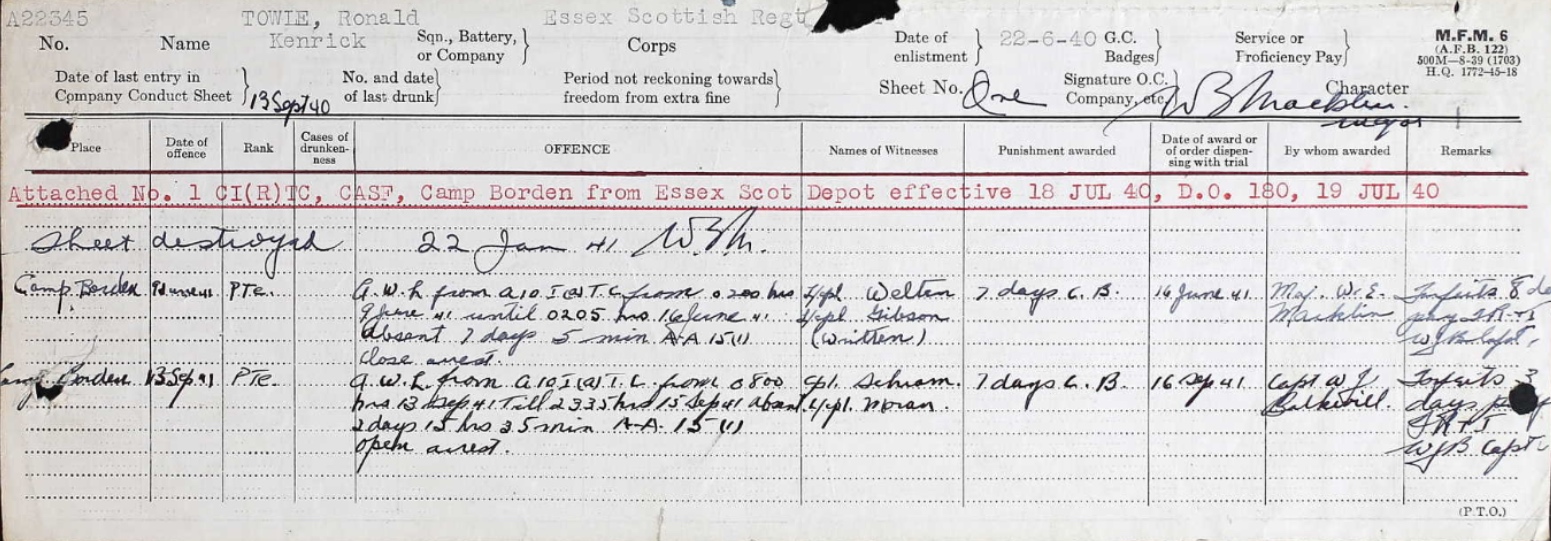 A22345 TOWIE, Ronald Essex Scottish Regt
No. Name Kenrick Sqn., Battery, or Company Corps Date of enlistment 22-6-40 G.C. Badges Service or Proficiency Pay M.F.M. 6
(A.F.B. 122)
500M—8-39 (1703)
H.Q. 1772-45-18
Date of last entry in Company Conduct Sheet 13 Sept 40 No. and date of last drunk Period not reckoning towards freedom from extra fine Sheet No. One Signature O.C. Company, etc. W B Macklin. Character
Major
Place Date of offence Rank Cases of drunken-ness OFFENCE Names of Witnesses Punishment awarded Date of award or of order dispen-sing with trial By whom awarded Remarks
Attached No. 1 CI(R)TC, CASF, Camp Borden from Essex Scot Depot effective 18 JUL 40, D.O. 180, 19 JUL 40
Sheet destroyed 22 Jan 41
Camp Borden 9 June 41 Pte. A.W.L from A10 I(a)T.C. from 0200 hrs L/cpl Welten 7 days C.B. 16 June 41 Maj. W.E. Forfeits 8
9 June 41 until 0205 hrs. 16 June 41 L/cpl Gibson Macklin pay
absent 7 days 5 min A-A 15(1) (written)
Close arrest.
Borden 13 Sep 41 Pte. A.W.L. from A10 I(a)T.C. from 0800 Cpl. Schram. 7 days C.B. 16 Sep 41 Capt W J Forfeits 3
hrs 13 Sep 41 Till 2335 hrs 15 Sep 41 absent L/cpl. Moran. days
2 days 15 hrs 35 min A-A. 15(1)
open arrest. WJB Capt
(P.T.O.)